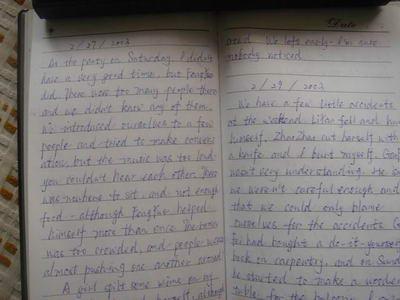 2/27/2003
At the party on Saturday, I didn't
have a very good time, but Fengfu
did. There were too many people there
and we didn't know any of them.
We introduced ourselves to a few
people and tried to make convers
ation, but the music was too loud
you couldn't hear each other. There
was nowhere to sit, and not enough
food - although Fengfu helped
himself more than once. The house
was too crowded, and people were
almost pushing one another around
A girl spilt some wine on my
Date
. We left early - I'm sure
nobody noticed.
2/29/2003
We have a few little accidents
at the weekend. Litao fell and hurt
himself. Zhaozhao cut herself with
a knife and I burt myself.
wasn't very understanding. He said
we weren't careful enough and
that we could only blame
ourselves for the accidents.
had bought a do-it-yourself
book in carpentry, and on Sund
he started to make a wooden
table for the